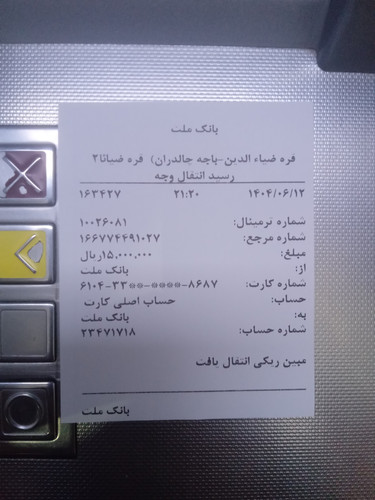 بانک ملت
قره ضیاء الدین-پاچه چالدران) قره ضیاتا۲
رسید انتقال وجه
۱۴۰۴/۰۶/۱۲ ۲۱:۲۰ ۱۶۳۴۲۷
شماره ترمینال: ۱۰۰۲۶۰۸۱
شماره مرجع: ۱۶۶۷۷۴۴۹۱۰۲۷
مبلغ: ۱۵,۰۰۰,۰۰۰ریال
از: بانک ملت
شماره کارت: ۶۱۰۴-۳۳**-****-۸۶۸۷
حساب: حساب اصلی کارت
به: بانک ملت
شماره حساب: ۲۳۴۷۱۷۱۸
مبین ریکی انتقال یافت
بانک ملت